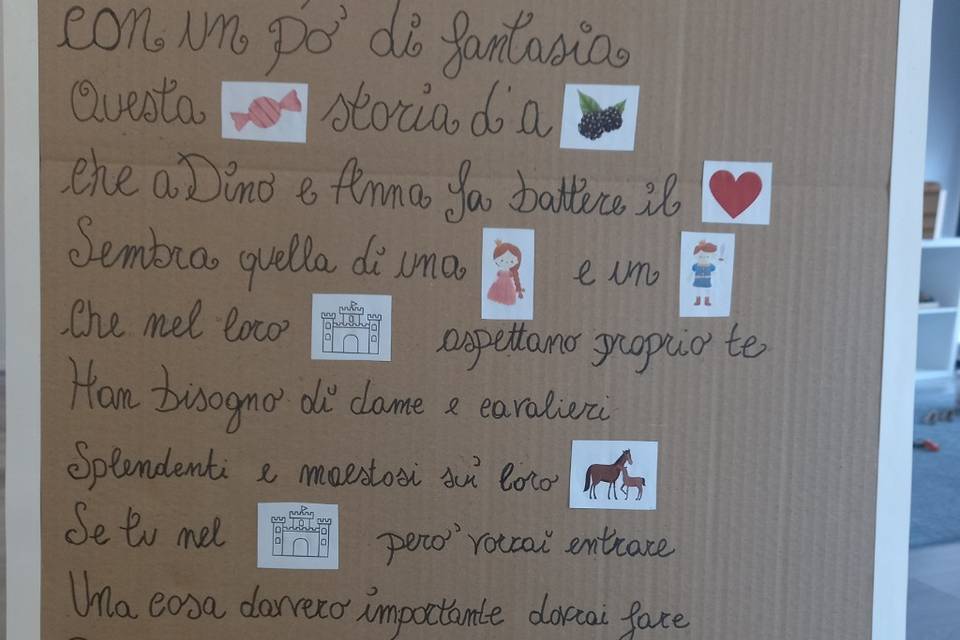 con un pò di fantasia
Questa storia d'a
che a Dino e Anna fa battere il
Sembra quella di una e un
Che nel loro aspettano proprio te
Han bisogno di dame e cavalieri
Splendenti e maestosi sui loro
Se tu nel però vorrai entrare
Una cosa davvero importante dovrai fare